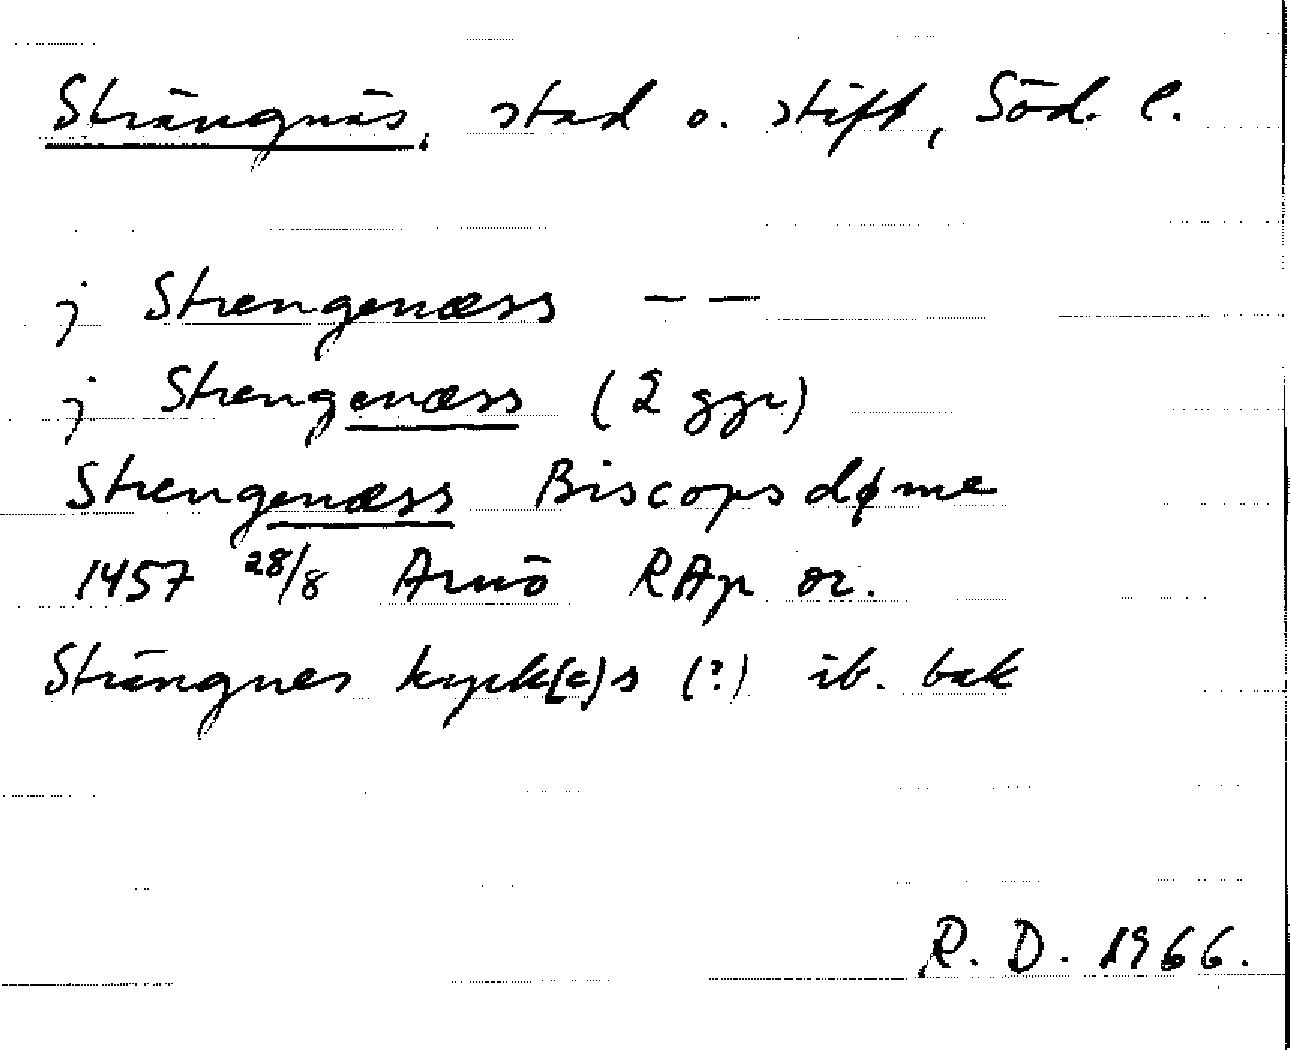 Strängnäs, stad o. stift, Söd. l.
j Strengenæss — —
j Strengenæss (2 ggr)
Strengenæss Biscopsdøme
1457 28/8 Arnö RAp or.
Strängnes kyrk(e)s (?) ib. bak
R. D. 1966.